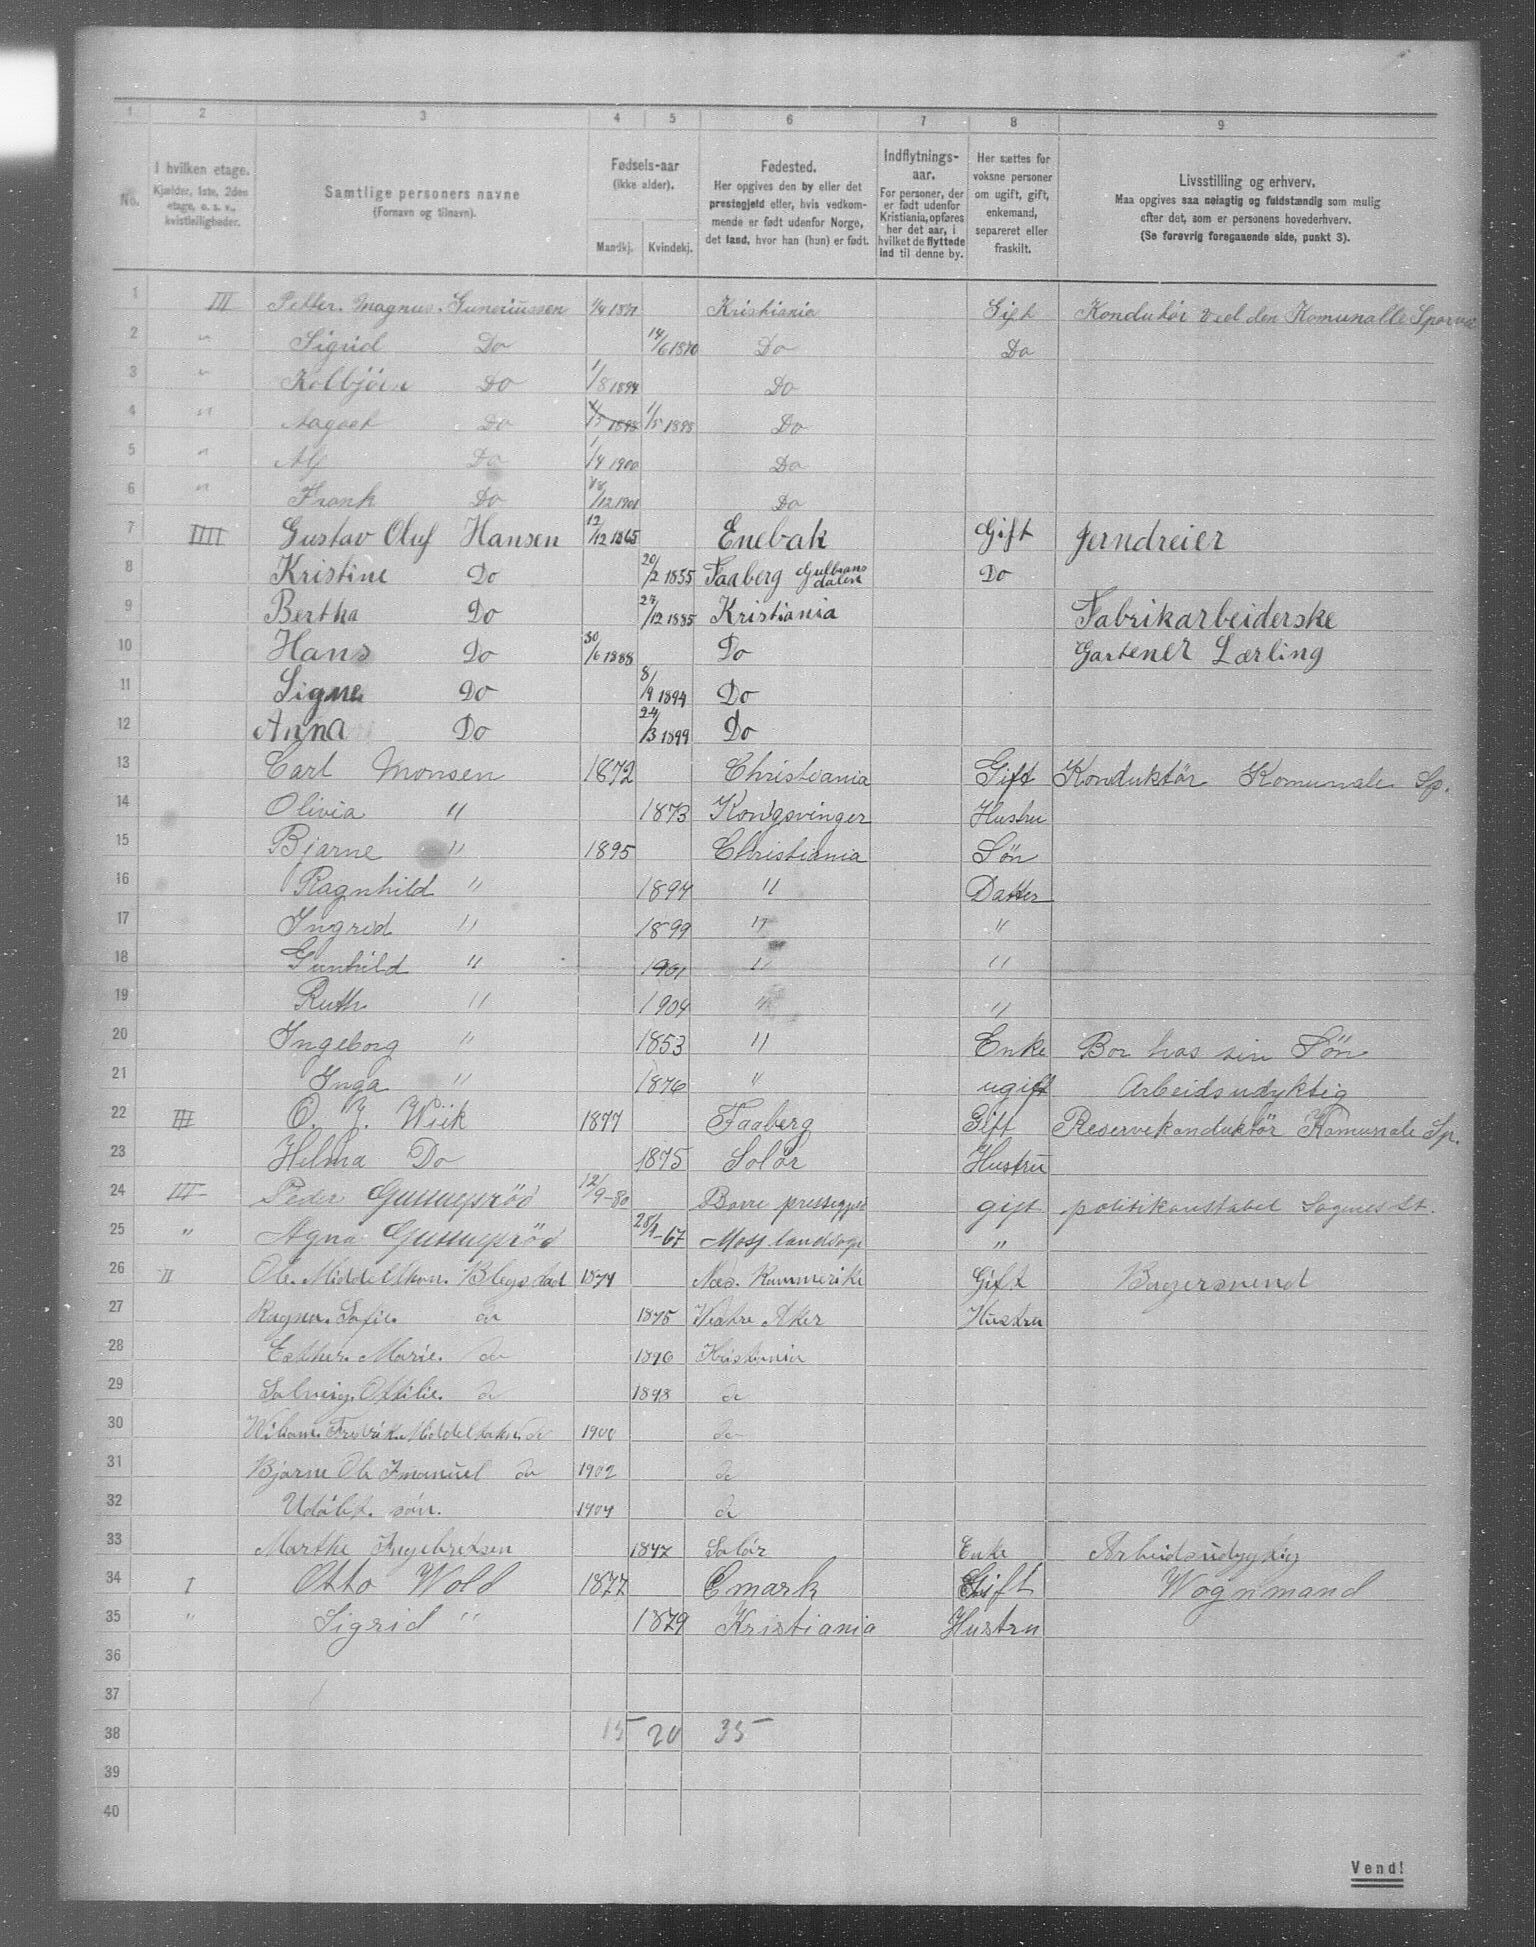 1 2 3 4 5 6 7 8 9
No.
I hvilken etage.
Kjælder, 1ste, 2den
etage, o. s. v.,
kvistleiligheder.
Samtlige personers navne
(Fornavn og tilnavn).
Fødsels-aar
(ikke alder).
Mandkj. Kvindekj.
Fødested.
Her opgives den by eller det
prestegjeld eller, hvis vedkom-
mende er født udenfor Norge,
det land, hvor han (hun) er født.
Indflytnings-
aar.
For personer, der
er født udenfor
Kristiania, opføres
her det aar, i
hvilket de flyttede
ind til denne by.
Her sættes for
voksne personer
om ugift, gift,
enkemand,
separeret eller
fraskilt.
Livsstilling og erhverv.
Maa opgives saa nøiagtig og fuldstændig som mulig
efter det, som er personens hovederhverv.
(Se forøvrig foregaaende side, punkt 3).
1 III Petter. Magnus. Guneriussen 1/4 1871 Kristiania Gift Konduktør ved den Komunalle
2 " Sigrid Do 14/6 1870 Do Do
3 " Kolbjörn Do 1/8 1894 Do
4 " Do 1/5 1898 Do
5 " Alf Do 1/4 1900 Do
6 " Frank Do /12 1901 Do
7 IIII Gustav Oluf Hansen 12/12 1865 Enebak Gift Jerndreier
8 Kristine Do 20/2 1855 Faaberg Gulbransdalen Do
9 Bertha Do 27/12 1885 Kristiania Fabrikarbeiderske
10 Hans Do 30/6 1888 Do Gartener Lærling
11 Signe Do 8/9 1894 Do
12 Anna Do 24/3 1899 Do
13 Carl Monsen 1872 Christiania Gift Konduktör Komunale Sp.
14 Olivia " 1873 Kongsvinger Hustru
15 Bjarne " 1895 Christiania Sön
16 Ragnhild " 1894 " Datter
17 Ingrid " 1899 " "
18 Gunhild " 1901 " "
19 Ruth " 1904 " "
20 Ingeborg " 1853 " Enke Bor hos sin Sön
21 Inga " 1876 " ugift Arbeidsudyktig
22 III O. J. Wiik 1877 Faaberg Gift Reservekonduktör Komunale Sp.
23 Helma Do 1875 Solör Hustru
24 III Peder 12/9-80 Borre gift politikonstabel Sagnes St.
25 " Agna 67 Moss "
26 II Ole. 1874 Nes. Rommerike Gift Bagersvend
27 Ragna. Sofie. do 1875 Vestre Aker Hustru
28 Esther. Marie. do 1896 Kristiania
29 Solveig. Ottilie. do 1898 do
30 Fredrik. do 1900 do
31 Bjarne Ole Imanuel do 1902 do
32 Udöbt. sön. 1904 do
33 Marthe Ingebretsen 1847 Solör Enke
34 I Otto Wold 1877 Emark Gift Wognmand
35 " Sigrid " 1879 Kristiania Hustru
36
37
38 15 20 35
39
40
Vend!